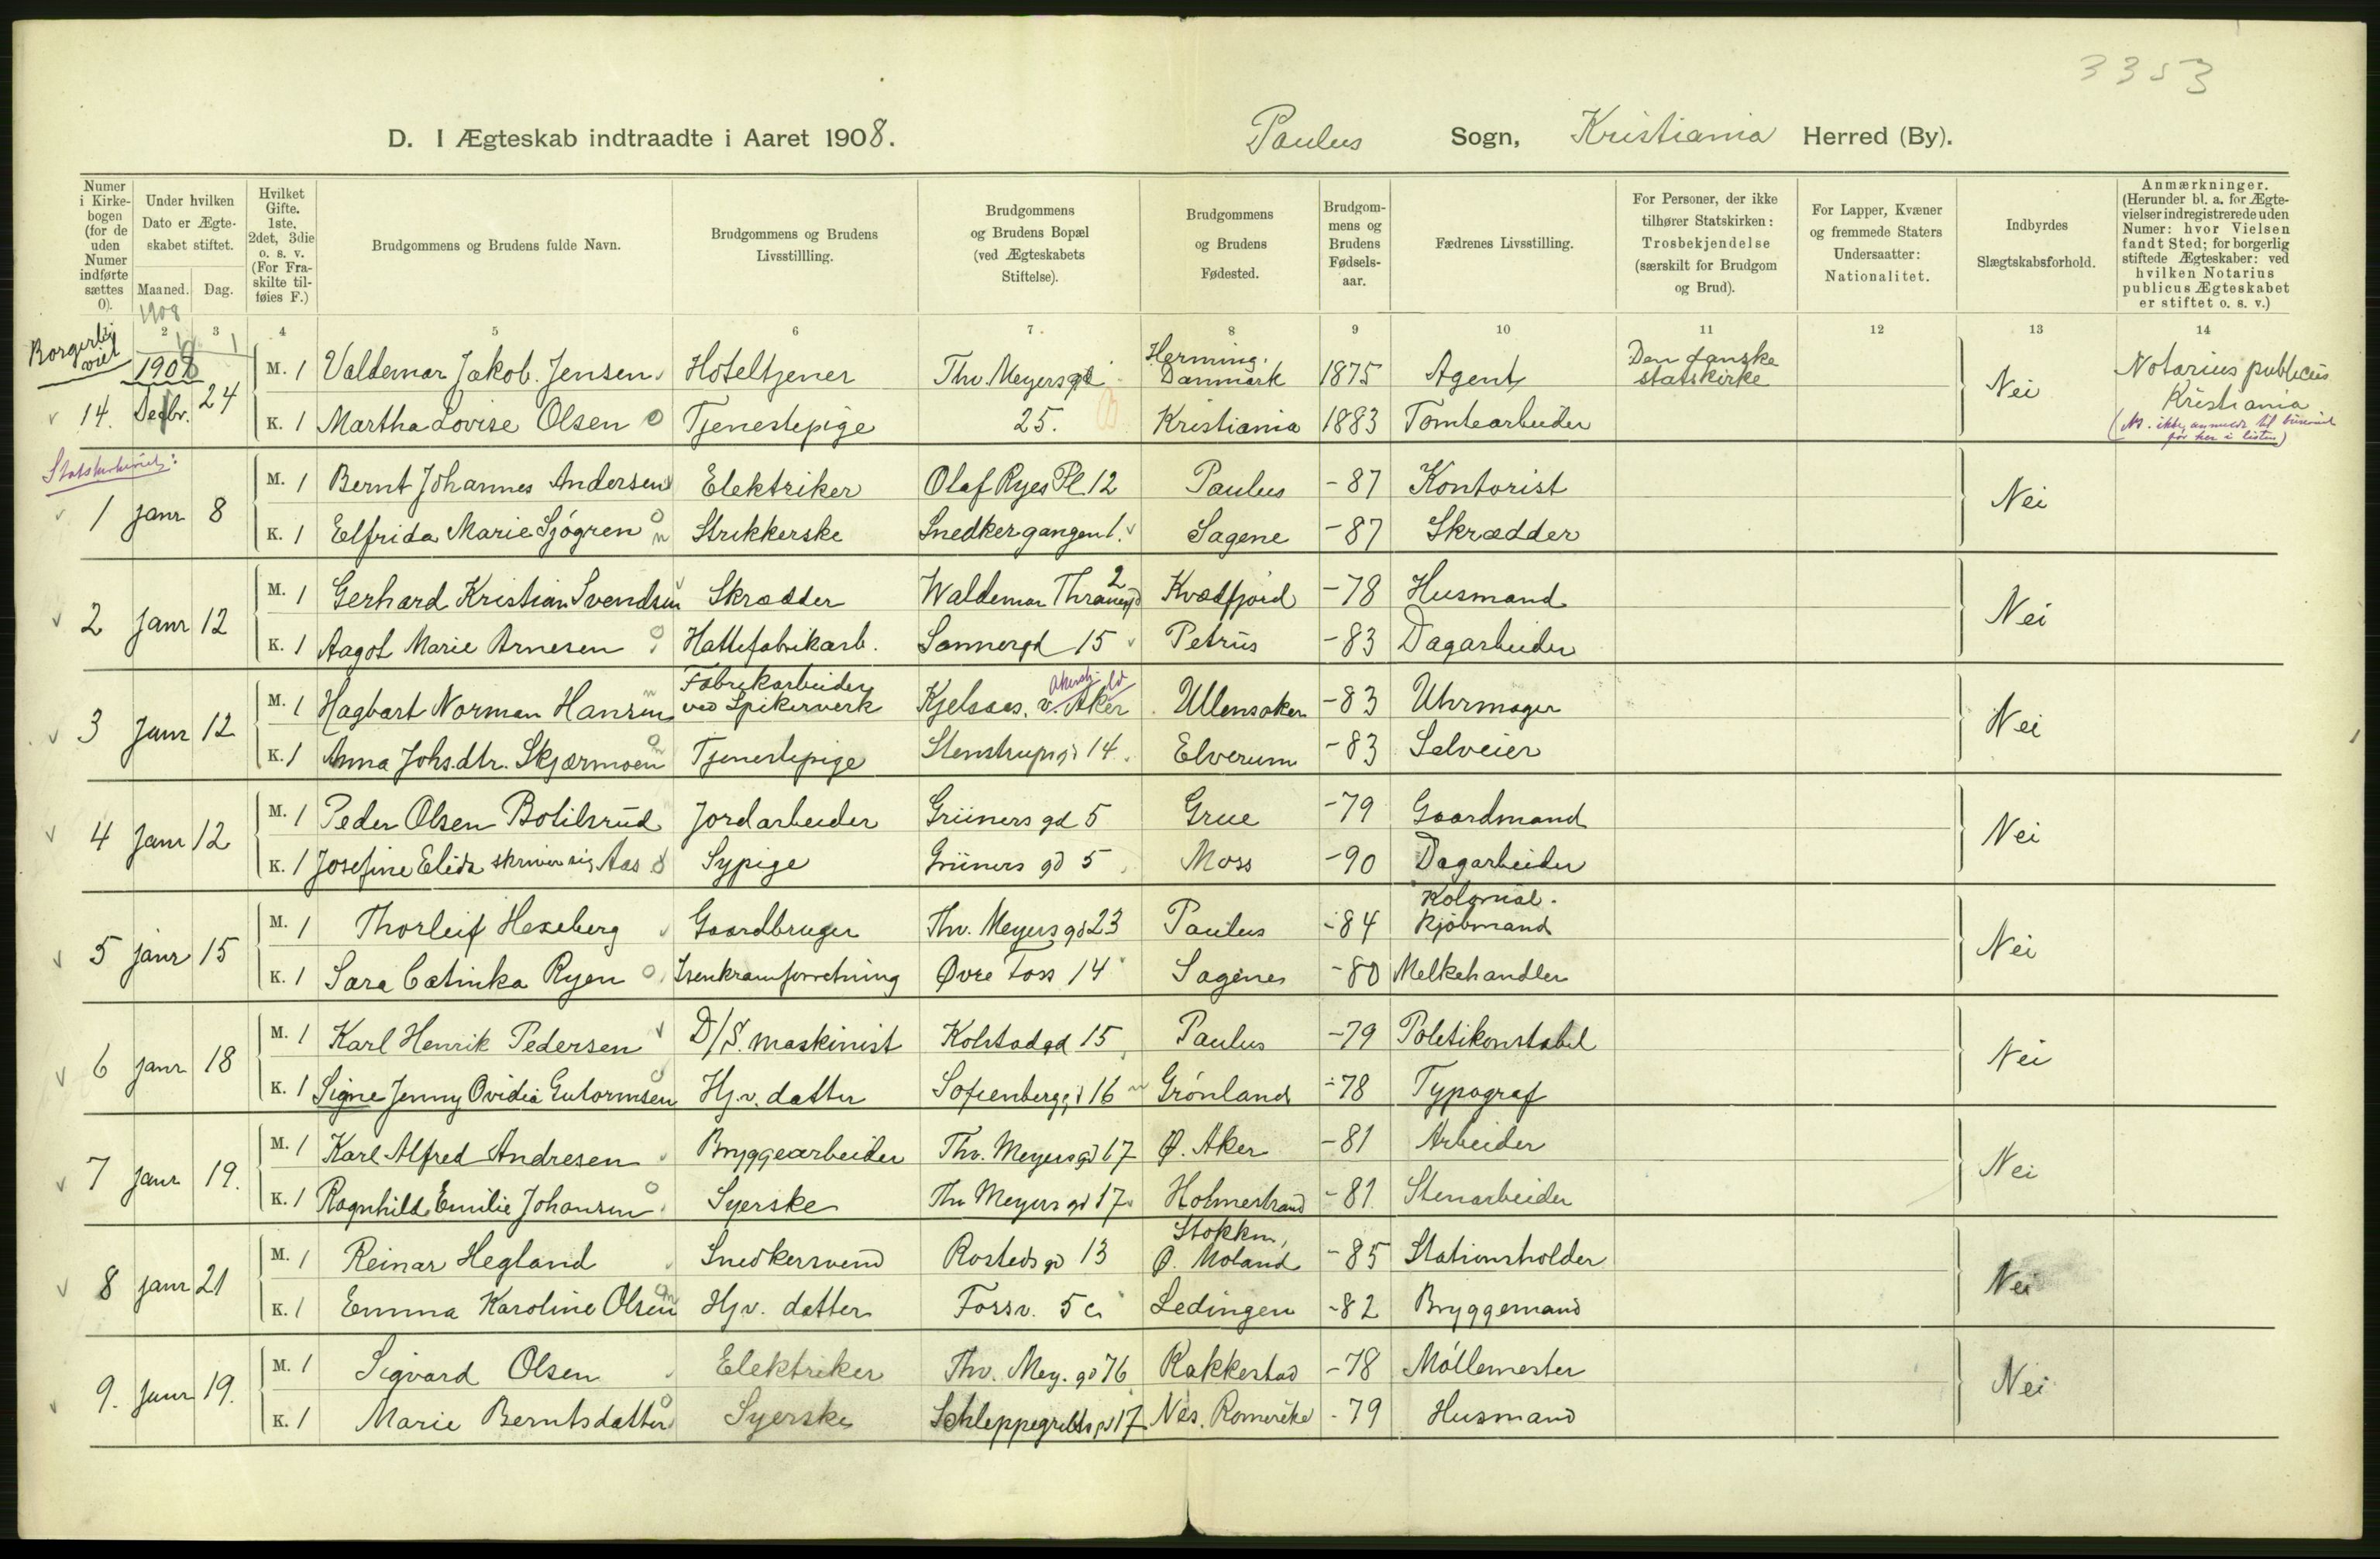 3353
D. I Ægteskab indtraadte i Aaret 1908. Paulus Sogn, Kristiania Herred (By).
Numer i Kirkebogen (for de uden Numer indførte sættes 0).
Under hvilken Dato er Ægteskabet stiftet.
Maaned. Dag.
Hvilket Gifte. 1ste, 2det, 3die o. s. v. (For Fraskilte tilføies F.)
Brudgommens og Brudens fulde Navn.
Brudgommens og Brudens Livsstillling.
Brudgommens og Brudens Bopæl (ved Ægteskabets Stiftelse).
Brudgommens og Brudens Fødested.
Brudgommens og Brudens Fødselsaar.
Fædrenes Livsstilling.
For Personer, der ikke tilhører Statskirken: Trosbekjendelse (særskilt for Brudgom og Brud).
For Lapper, Kvæner og fremmede Staters Undersaatter: Nationalitet.
Indbyrdes Slægtskabsforhold.
Anmærkninger. (Herunder bl. a. for Ægtevielser indregistrerede uden Numer: hvor Vielsen fandt Sted; for borgerlig stiftede Ægteskaber: ved hvilken Notarius publicus Ægteskabet er stiftet o. s. v.)
1908
2 3 4 5 6 7 8 9 10 11 12 13 14
Borgerlig viet
1908
14. Decbr. 24
M. 1 Valdemar Jakob Jensen Hoteltjener Thv. Meyersgd Herning. Danmark 1875 Agent Den danske statskirke Nei Notarius publicus Kristiania
K. 1 Martha Lovise Olsen Tjenestepige 25. Kristiania 1883 Tomtearbeider
Statskirkeviet:
1 janr 8 M. 1 Bernt Johannes Andersen Elektriker Olaf Ryes Pl 12 Paulus -87 Kontorist Nei
K. 1 Elfrida Marie Sjögren Strikkerske Snedkergangen 1. Sagene -87 Skrædder
2 janr 12 M. 1 Gerhard Kristian Svendsen Skrædder Waldemar Thranesgd 2 Kvædfjord -78 Husmand Nei
K. 1 Aagot Marie Arnesen Hattefabrikarb. Sannergd 15 Petrus -83 Dagarbeider
3 Janr 12 M. 1 Hagbart Norman Hansen Fabrikarbeider ved Spikerverk Kjelsaas, v. Aker Ullensaker -83 Uhrmager Nei
K. 1 Anna Johs.dtr. Skjærmoen Tjenestepige Stenstrupsgd 14. Elverum -83 Selveier
4 Janr 12 M. 1 Peder Olsen Botilsrud Jordarbeider Grüners gd 5 Grue -79 Gaardmand Nei
K. 1 Josefine Elida skriver sig Aas Sypige Grüners gd 5 Moss -90 Dagarbeider
5 janr 15 M. 1 Thorleif Hexeberg Gaardbruger Thv. Meyers gd 23 Paulus -84 Kolonialkjøbmand Nei
K. 1 Sara Catinka Ryen Isenkramforretning Øvre Foss 14 Sagene -80 Melkehandler
6 janr 18 M. 1 Karl Henrik Pedersen D/S. maskinist Kolstadgd 15 Paulus -79 Politikonstabel Nei
K. 1 Signe Jenny Ovidia Gutormsen Hj.v. datter Sofienberggd 16 Grønland -78 Typograf
7 janr 19. M. 1 Karl Alfred Andresen Bryggearbeider Thv. Meyersgd 67 Ø. Aker -81 Arbeider Nei
K. 1 Ragnhild Emilie Johansen Syerske Thv Meyers gd 17 Holmestrand -81 Stenarbeider
8 janr 21 M. 1 Reinar Hegland Snedkersvend Rosteds gd 13 Stokken, Ø. Moland -85 Stationsholder Nei
K. 1 Emma Karoline Olsen Hjv. datter Fossv. 5 c Lødingen -82 Bryggemand
9. Janr 19. M. 1 Sigvard Olsen Elektriker Thv. Mey. gd 76 Rakkestad -78 Møllemester Nei
K. 1 Marie Berntsdatter Syerske Schleppegrells gd 17 Nes, Romerike -79 Husmand